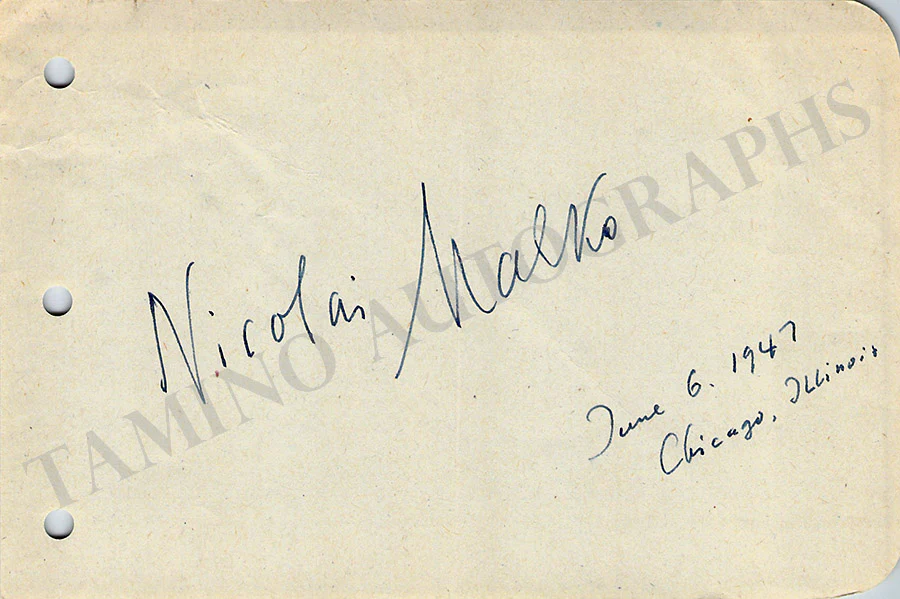 Nicolai Malko
June 6. 1947
Chicago, Illinois
TAMINO AUTOGRAPHS